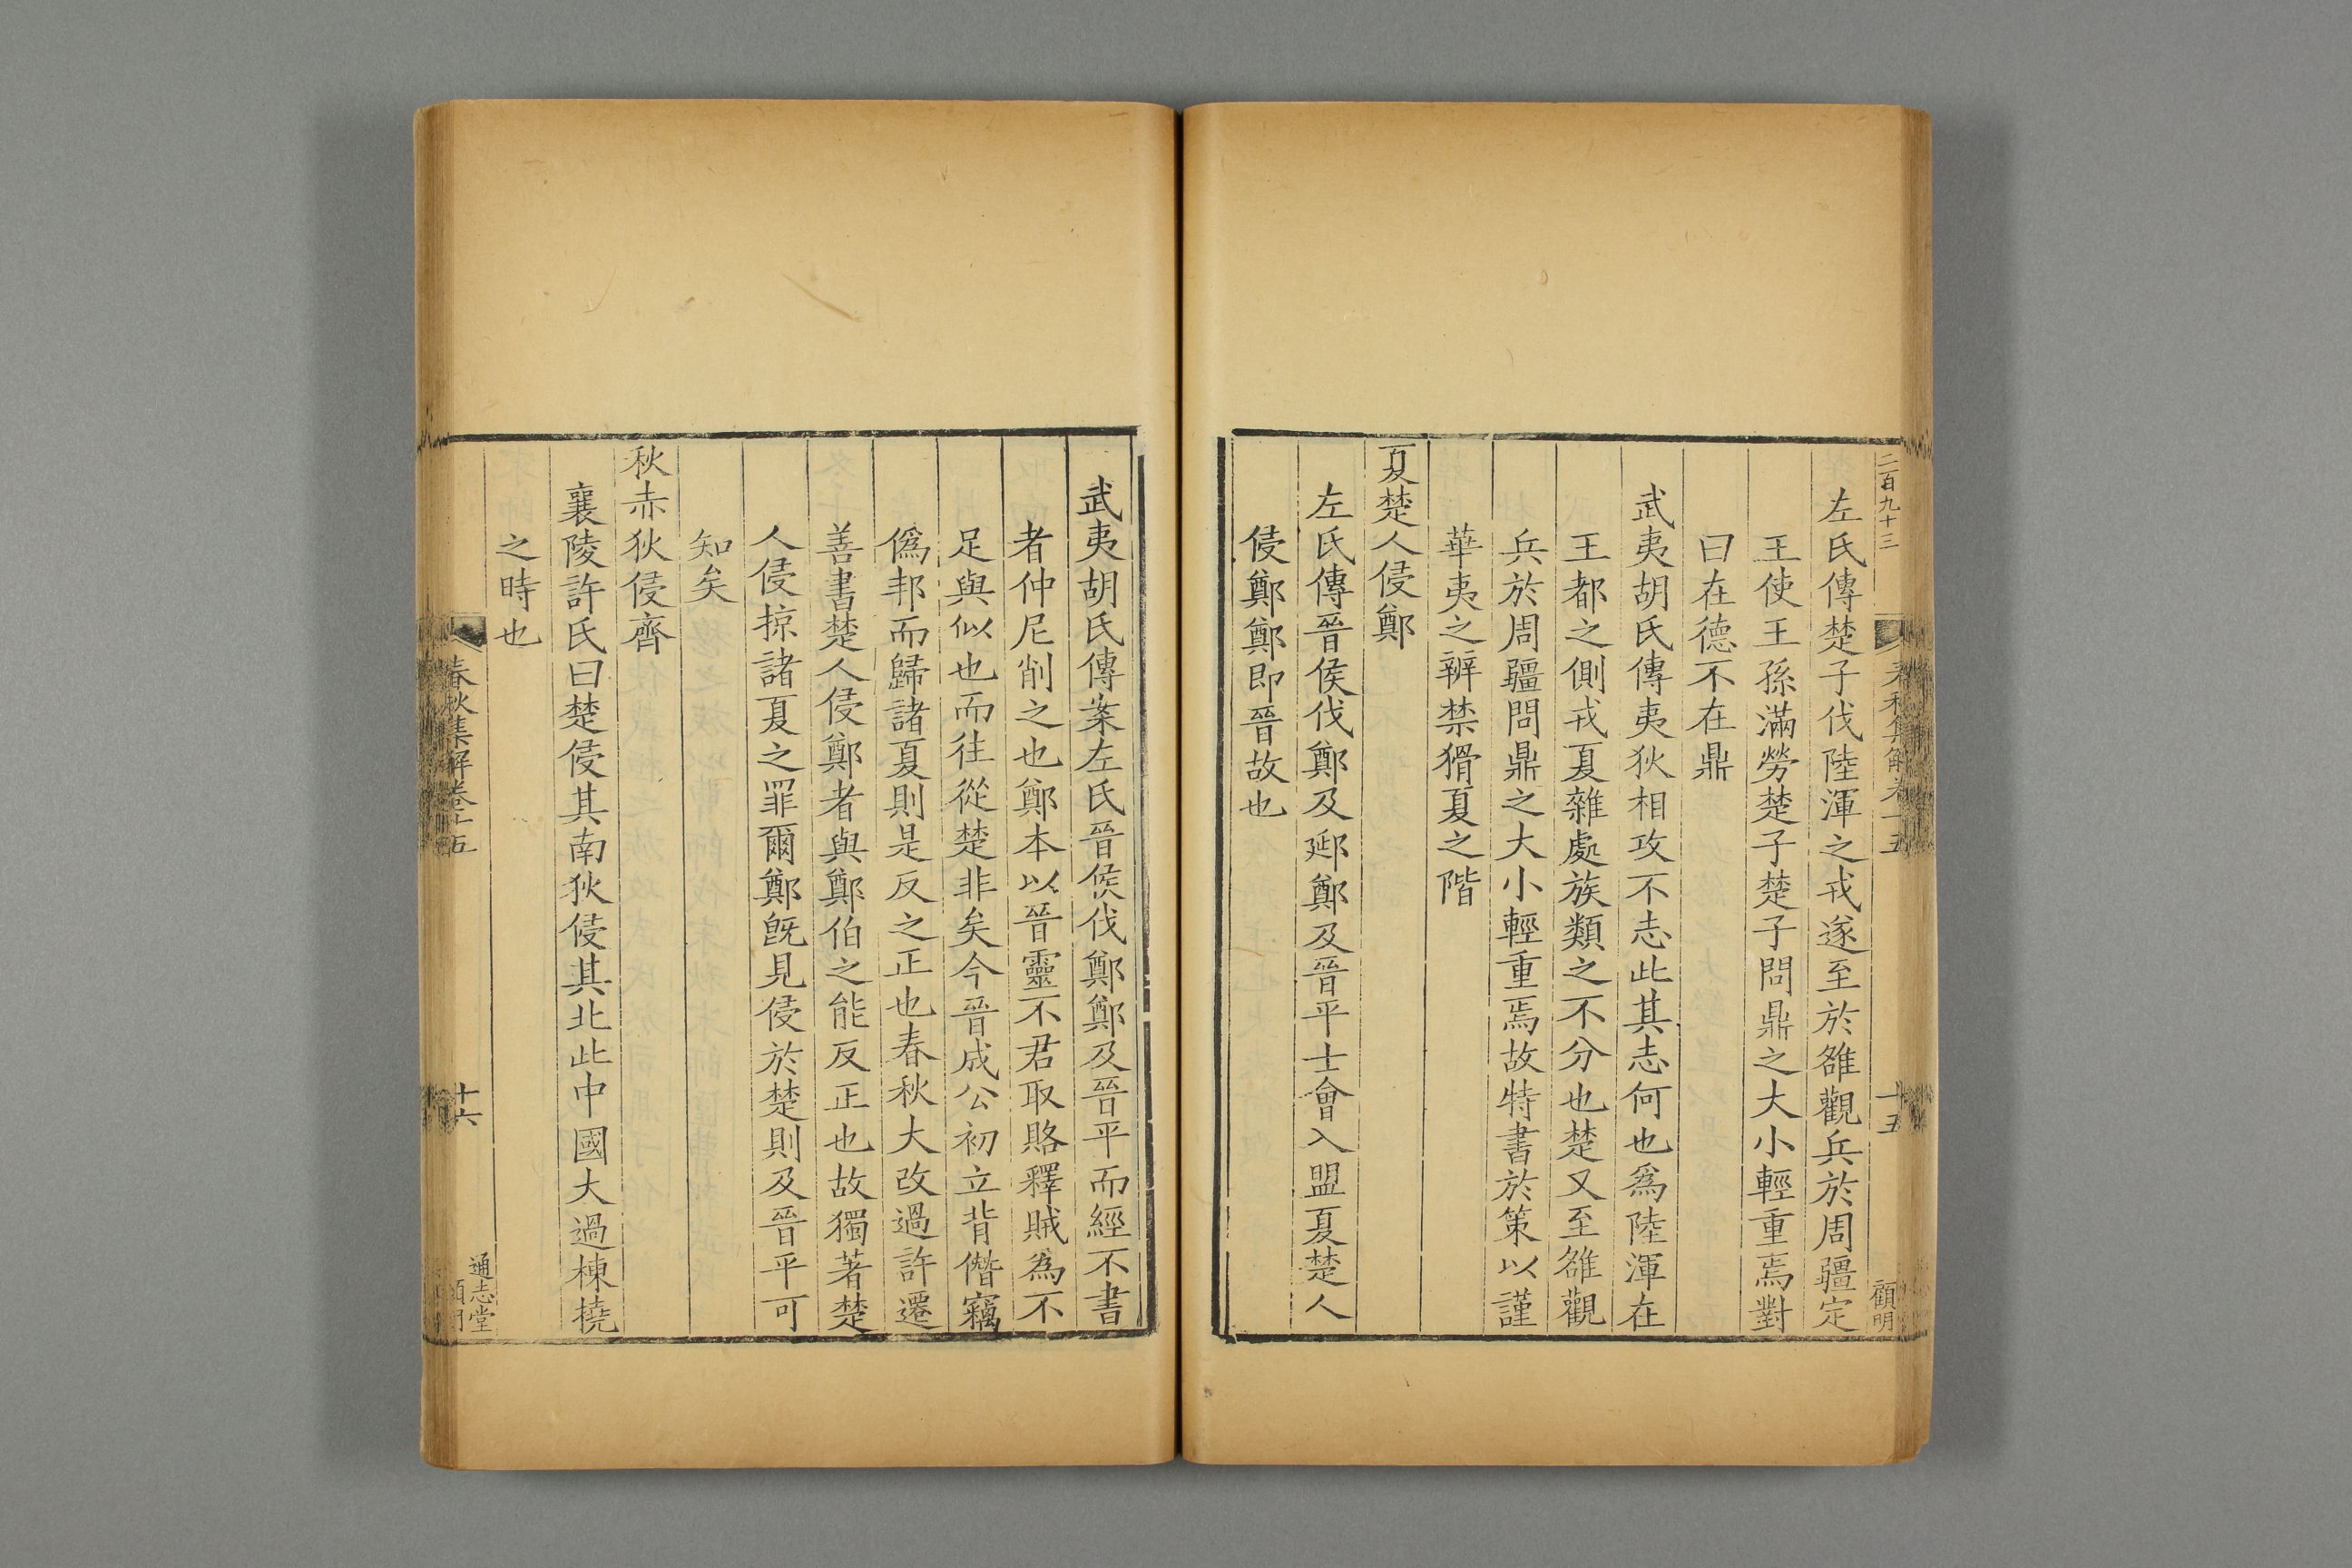 二百九十三
春秋集解卷十五
十五
顧明
左氏傳楚子伐陸渾之戎遂至於雒觀兵於周疆定
王使王孫滿勞楚子楚子問鼎之大小輕重焉對
曰在德不在鼎
武夷胡氏傳夷狄相攻不志此其志何也為陸渾在
王都之側戎夏雜處族類之不分也楚又至雒觀
兵於周疆問鼎之大小輕重焉故特書於策以謹
華夷之辨禁猾夏之階
夏楚人侵鄭
左氏傳晉侯伐鄭及郔鄭及晉平士會入盟夏楚人
侵鄭鄭即晉故也
武夷胡氏傳案左氏晉侯伐鄭鄭及晉平而經不書
者仲尼削之也鄭本以晉靈不君取賂釋賊為不
足與似也而往從楚非矣今晉成公初立背僭竊
偽邦而歸諸夏則是反之正也春秋大改過許遷
善書楚人侵鄭者與鄭伯之能反正也故獨著楚
人侵掠諸夏之罪爾鄭既見侵於楚則及晉平可
知矣
秋赤狄侵齊
襄陵許氏曰楚侵其南狄侵其北此中國大過棟撓
之時也
春秋集解卷十五
十六
通志堂